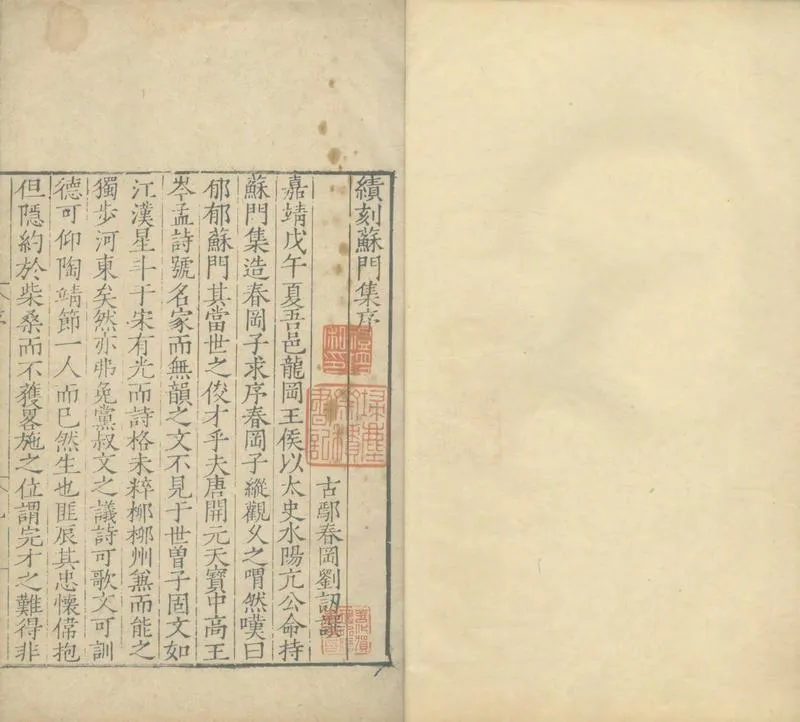 續刻蘇門集序
古鄢春岡劉訒譔
嘉靖戊午夏吾邑龍岡王侯以太史水陽亢公命持
蘇門集造春岡子求序春岡子縱觀久之喟然嘆曰
郁郁蘇門其當世之俊才乎夫唐開元天寶中高王
岑孟詩號名家而無韻之文不見于世曾子固文如
江漢星斗于宋有光而詩格未粹柳柳州兼而能之
獨步河東矣然亦弗免黨叔文之議詩可歌文可訓
德可仰陶靖節一人而已然生也匪辰其忠懷偉抱
但隱約於柴桑而不獲畧施之位謂完才之難得非